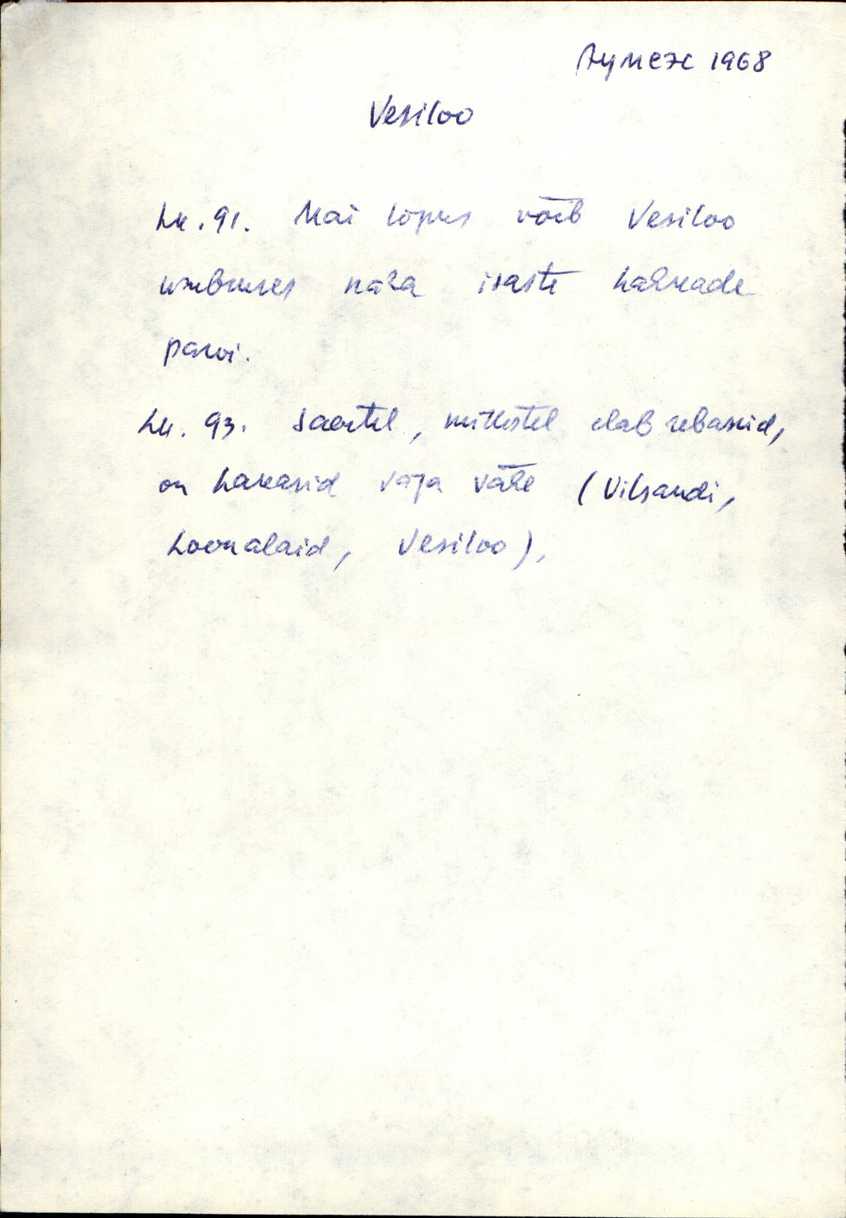 1968
Vesiloo
Lk. 91. Mai lõpus võib Vesiloo
ümbruses näha isaste hahkade
parvi.
Lk. 93. Saartel, millistel elab rebaseid,
on hahkasid väga vähe (Vilsandi,
Loonalaid, Vesiloo).